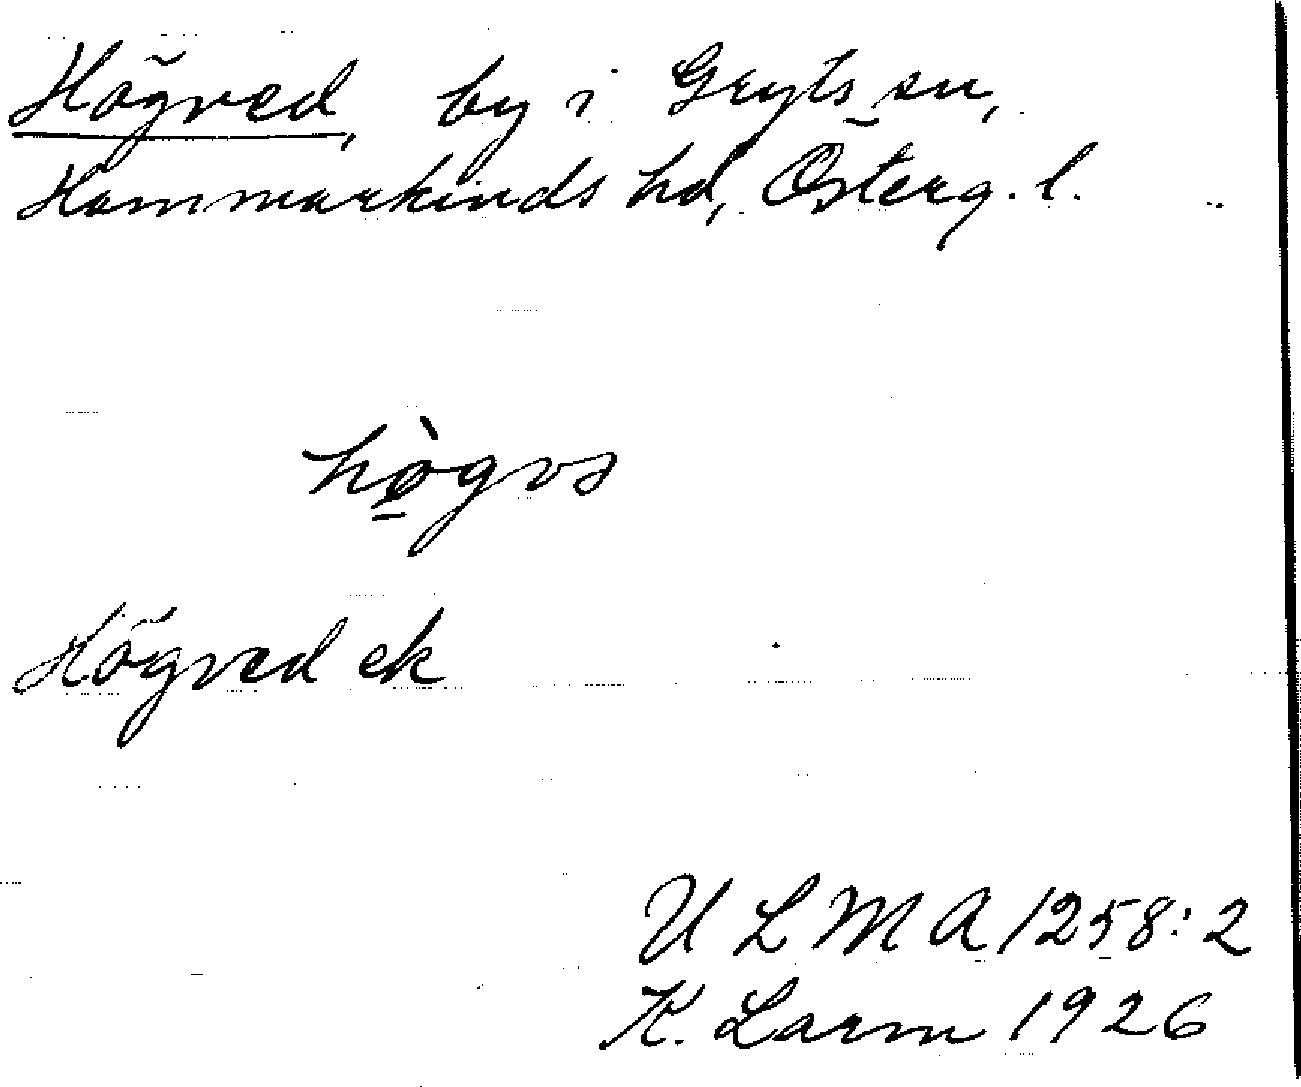 Högved, by i Gryts sn,
Hammarkinds hd, Österg. l.
hø̀gvs
Högved ek
U L M A 1258:2
K. Larm 1926